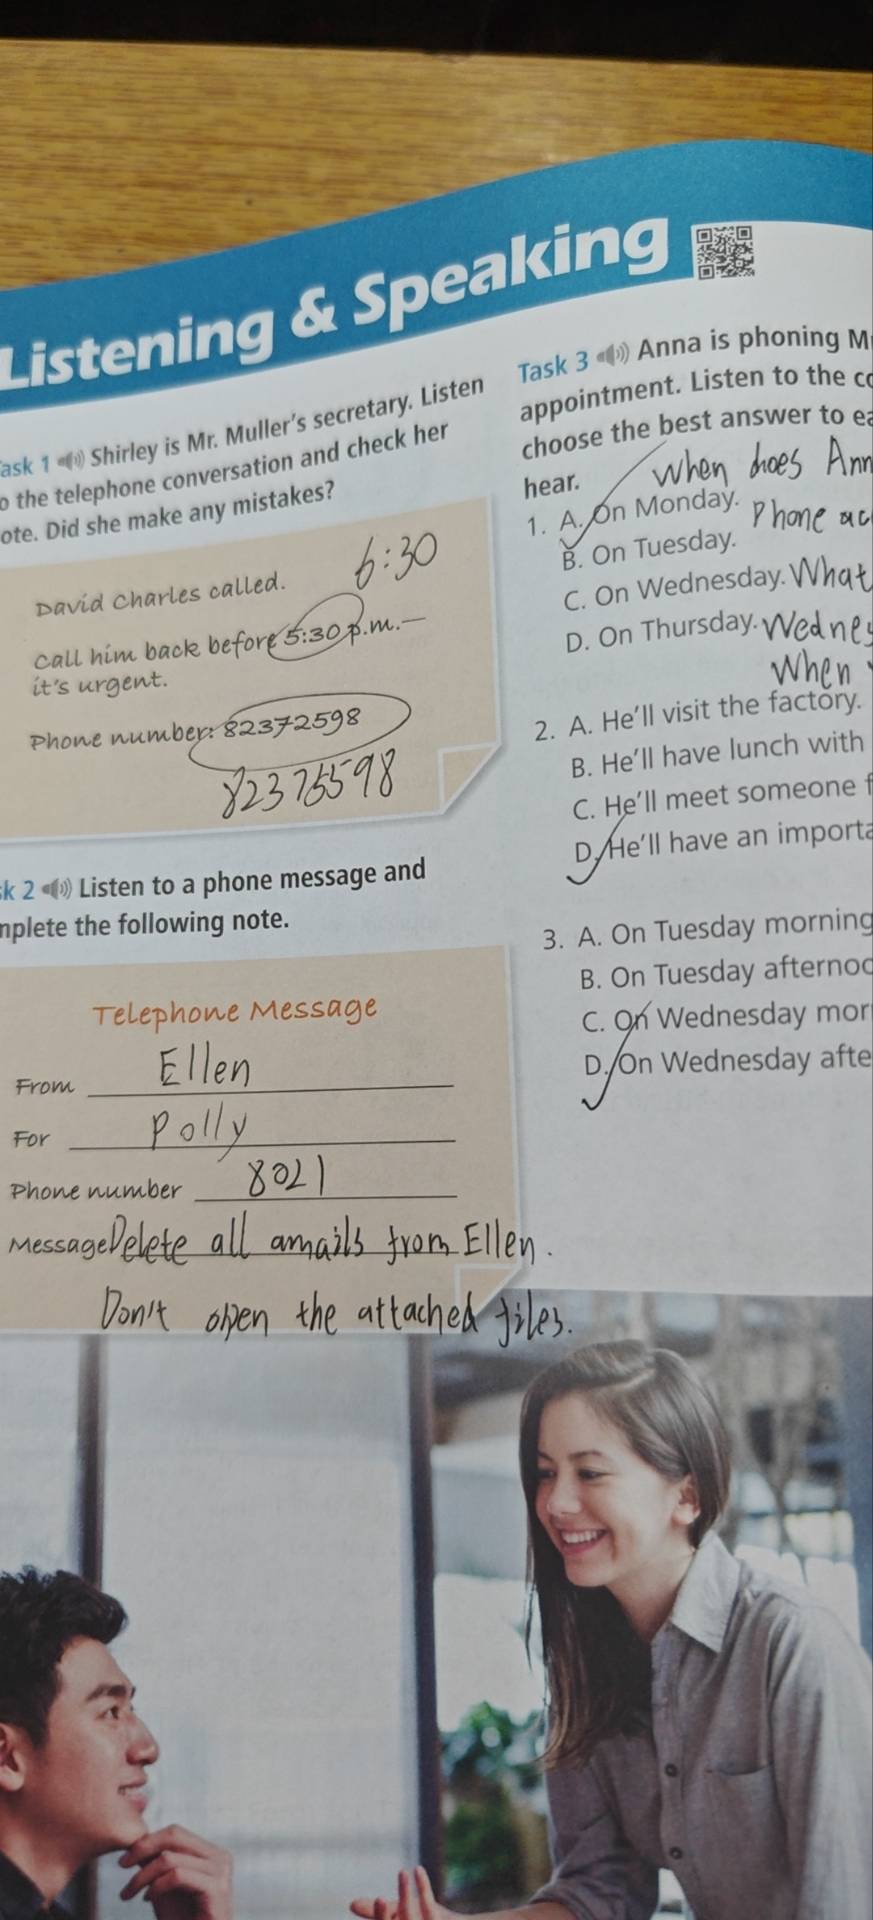 Listening & Speaking
ask 1 Shirley is Mr. Muller's secretary. Listen
o the telephone conversation and check her
ote. Did she make any mistakes?
David Charles called.
6:30
Call him back before 5:30 p.m.—
it's urgent.
Phone number: 82372598
82375598
k 2 Listen to a phone message and
mplete the following note.
Telephone Message
From Ellen
For Polly
Phone number 8021
Message Delete all amails from Ellen.
Don't open the attached files.
Task 3 Anna is phoning M
appointment. Listen to the co
choose the best answer to ea
hear.
When does Ann
1. A. On Monday.
Phone ac
B. On Tuesday.
C. On Wednesday. What
D. On Thursday. Wednes
When
2. A. He'll visit the factory.
B. He'll have lunch with
C. He'll meet someone f
D. He'll have an importa
3. A. On Tuesday morning
B. On Tuesday afternoo
C. On Wednesday mor
D. On Wednesday afte